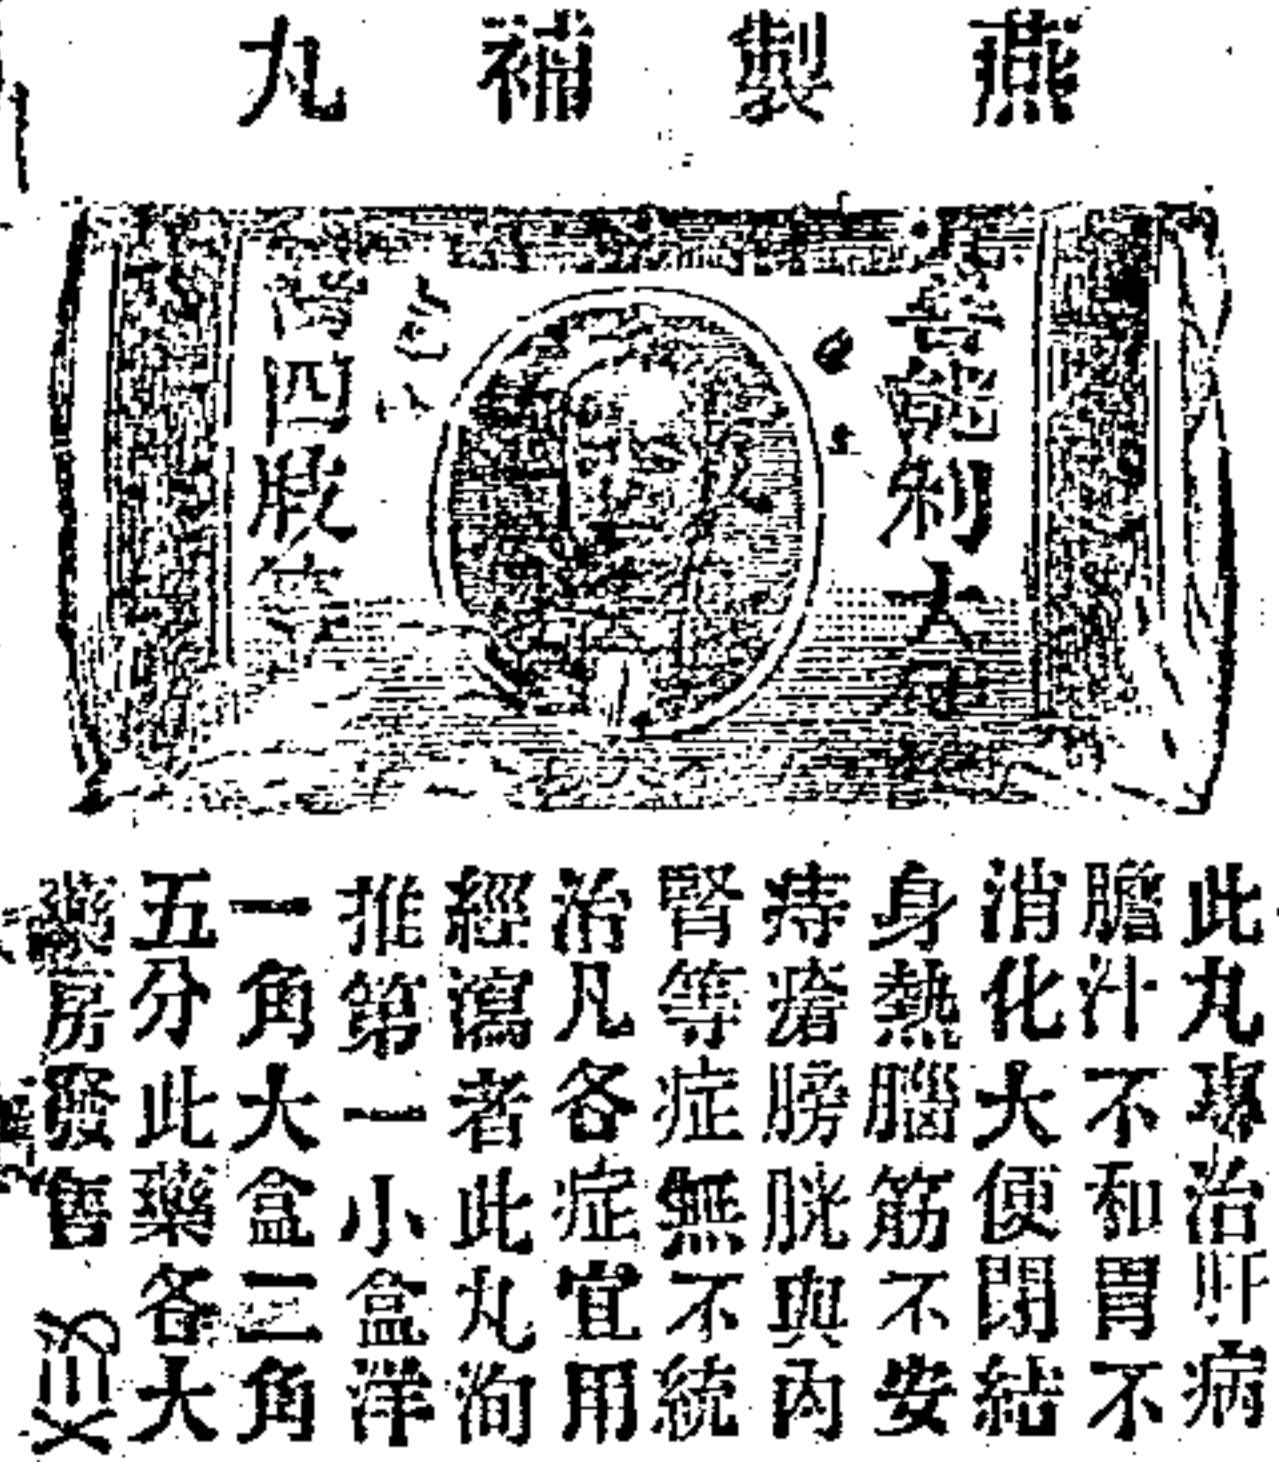 燕製補丸
善能利大便
四肢等
此丸專治肝病
膽汁不和胃不
消化大便閉結
身熱腦筋不安
痔瘡膀胱與內
腎等症無不統
治凡各症宜用
經瀉者此丸洵
推第一小盒洋
一角大盒二角
五分此藥各大
藥房發售